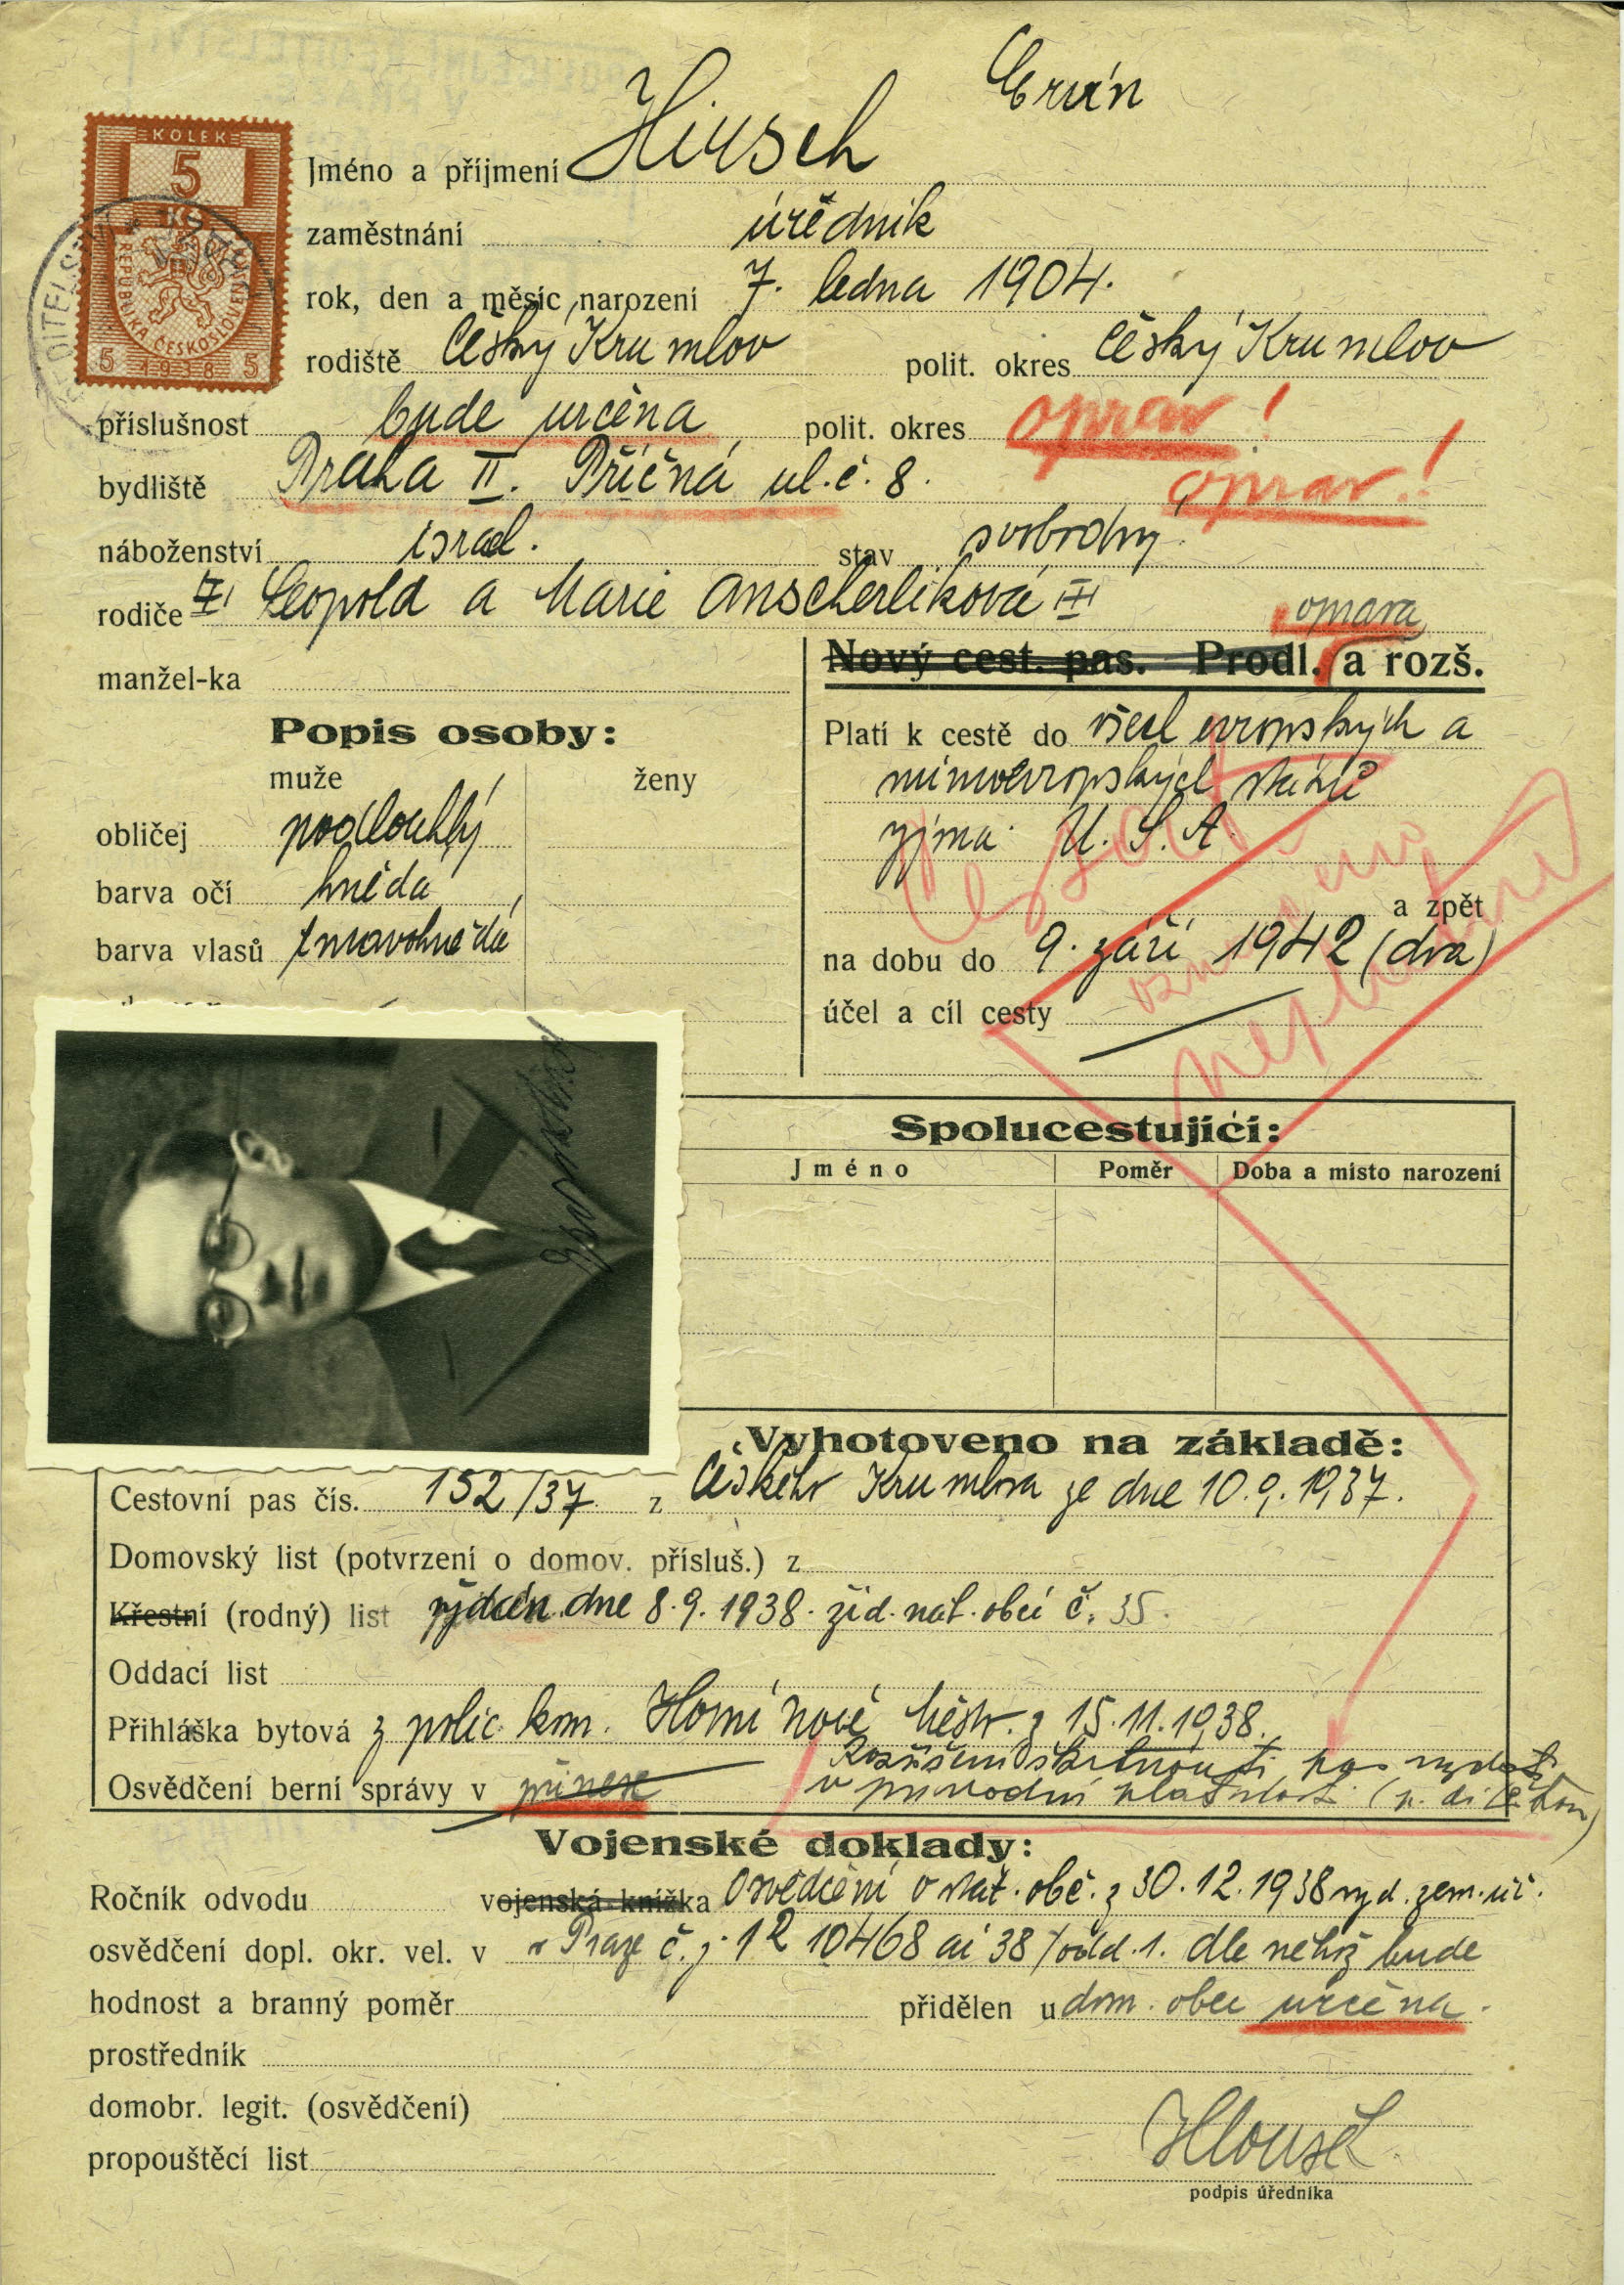 Ervín
Jméno a příjmení Hirsch
KOLEK
5
REPUBLIKA ČESKOSLOVENSKÁ
5 1938 5
ŘEDITELSTV
zaměstnání úředník
rok, den a měsíc narození 7. ledna 1904.
rodiště Český Krumlov polit. okres Český Krumlov
příslušnost bude určena polit. okres oprav!
bydliště Praha II. Příčná ul. č. 8. oprav!
náboženství israel. stav svobodný
rodiče Leopold a Marie Anscherlíková
oprava
manžel-ka
Nový cest. pas. Prodl. a rozš.
Popis osoby:
muže ženy
obličej podlouhlý
barva očí hnědá
barva vlasů tmavohnědá
Platí k cestě do všech evropských a
mimoevropských států
vyjma U. S. A.
a zpět
na dobu do 9. září 1942 (dva)
účel a cíl cesty
neplatný
Spolucestující:
Jméno Poměr Doba a místo narození
Vyhotoveno na základě:
Cestovní pas čís. 152/37. z Českého Krumlova ze dne 10. 9. 1937.
Domovský list (potvrzení o domov. přísluš.) z
Křestní (rodný) list vydán dne 8. 9. 1938. žid. nát. obcí č. 35.
Oddací list
Přihláška bytová z polic. kom. Horní Nové Město z 15. 11. 1938.
Rozšíření škrtnouti, pas vydati
Osvědčení berní správy v přinese
v původní platnosti
Vojenské doklady:
Ročník odvodu vojenská knížka Osvědčení o stát. obč. z 30. 12. 1938 vyd. zem. úř.
osvědčení dopl. okr. vel. v v Praze č. j. 12 10468 ai 38 / odd. 1. dle něhož bude
hodnost a branný poměr přidělen u dom. obec určena.
prostředník
domobr. legit. (osvědčení)
propouštěcí list
podpis úředníka